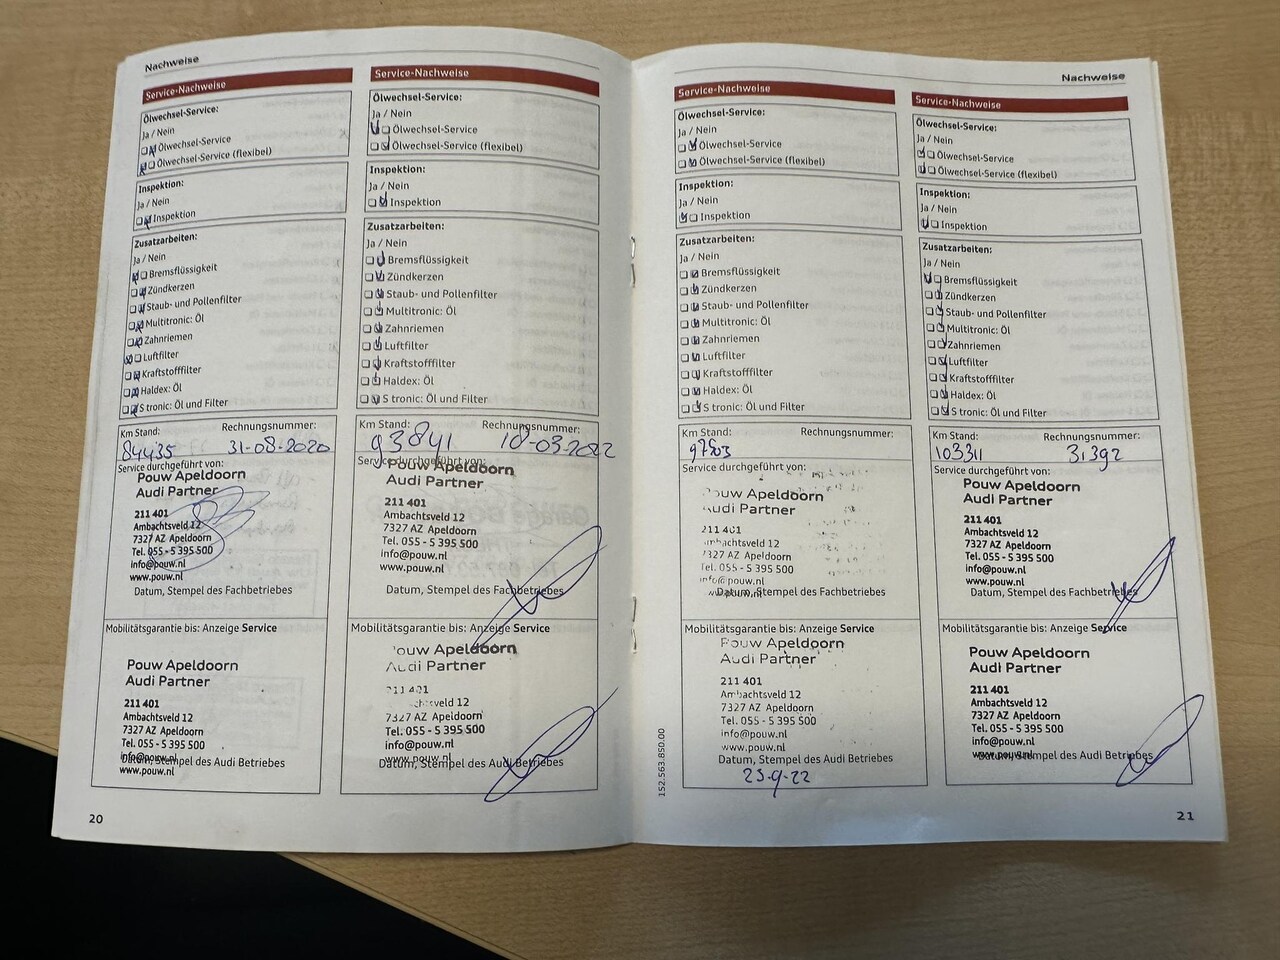 Nachweise
Service-Nachweise
Ölwechsel-Service:
Ja / Nein
Ölwechsel-Service
Ölwechsel-Service (flexibel)
Inspektion:
Ja / Nein
Inspektion
Zusatzarbeiten:
Ja / Nein
Bremsflüssigkeit
Zündkerzen
Staub- und Pollenfilter
Multitronic: Öl
Zahnriemen
Luftfilter
Kraftstofffilter
Haldex: Öl
S tronic: Öl und Filter
Km Stand: Rechnungsnummer:
84435 31-08-2020
Service durchgeführt von:
Pouw Apeldoorn
Audi Partner
211 401
Ambachtsveld 12
7327 AZ Apeldoorn
Tel. 055 - 5 395 500
info@pouw.nl
www.pouw.nl
Datum, Stempel des Fachbetriebes
Mobilitätsgarantie bis: Anzeige Service
Pouw Apeldoorn
Audi Partner
211 401
Ambachtsveld 12
7327 AZ Apeldoorn
Tel. 055 - 5 395 500
info@pouw.nl
Datum, Stempel des Audi Betriebes
www.pouw.nl
20
Service-Nachweise
Ölwechsel-Service:
Ja / Nein
Ölwechsel-Service
Ölwechsel-Service (flexibel)
Inspektion:
Ja / Nein
Inspektion
Zusatzarbeiten:
Ja / Nein
Bremsflüssigkeit
Zündkerzen
Staub- und Pollenfilter
Multitronic: Öl
Zahnriemen
Luftfilter
Kraftstofffilter
Haldex: Öl
S tronic: Öl und Filter
Km Stand: Rechnungsnummer:
93841 10-03-2022
Service durchgeführt von:
Pouw Apeldoorn
Audi Partner
211 401
Ambachtsveld 12
7327 AZ Apeldoorn
Tel. 055 - 5 395 500
info@pouw.nl
www.pouw.nl
Datum, Stempel des Fachbetriebes
Mobilitätsgarantie bis: Anzeige Service
Pouw Apeldoorn
Audi Partner
211 401
7327 AZ Apeldoorn
Tel. 055 - 5 395 500
info@pouw.nl
www.pouw.nl
Datum, Stempel des Audi Betriebes
Nachweise
Service-Nachweise
Ölwechsel-Service:
Ja / Nein
Ölwechsel-Service
Ölwechsel-Service (flexibel)
Inspektion:
Ja / Nein
Inspektion
Zusatzarbeiten:
Ja / Nein
Bremsflüssigkeit
Zündkerzen
Staub- und Pollenfilter
Multitronic: Öl
Zahnriemen
Luftfilter
Kraftstofffilter
Haldex: Öl
S tronic: Öl und Filter
Km Stand: Rechnungsnummer:
Service durchgeführt von:
Pouw Apeldoorn
Audi Partner
211 401
Ambachtsveld 12
7327 AZ Apeldoorn
Tel. 055 - 5 395 500
info@pouw.nl
www.pouw.nl
Datum, Stempel des Fachbetriebes
Mobilitätsgarantie bis: Anzeige Service
Pouw Apeldoorn
Audi Partner
211 401
Ambachtsveld 12
7327 AZ Apeldoorn
Tel. 055 - 5 395 500
info@pouw.nl
www.pouw.nl
Datum, Stempel des Audi Betriebes
23-9-22
152.563.850.00
Service-Nachweise
Ölwechsel-Service:
Ja / Nein
Ölwechsel-Service
Ölwechsel-Service (flexibel)
Inspektion:
Ja / Nein
Inspektion
Zusatzarbeiten:
Ja / Nein
Bremsflüssigkeit
Zündkerzen
Staub- und Pollenfilter
Multitronic: Öl
Zahnriemen
Luftfilter
Kraftstofffilter
Haldex: Öl
S tronic: Öl und Filter
Km Stand: Rechnungsnummer:
103311 31392
Service durchgeführt von:
Pouw Apeldoorn
Audi Partner
211 401
Ambachtsveld 12
7327 AZ Apeldoorn
Tel. 055 - 5 395 500
info@pouw.nl
www.pouw.nl
Datum, Stempel des Fachbetriebes
Mobilitätsgarantie bis: Anzeige Service
Pouw Apeldoorn
Audi Partner
211 401
Ambachtsveld 12
7327 AZ Apeldoorn
Tel. 055 - 5 395 500
info@pouw.nl
www.pouw.nl
Datum, Stempel des Audi Betriebes
21